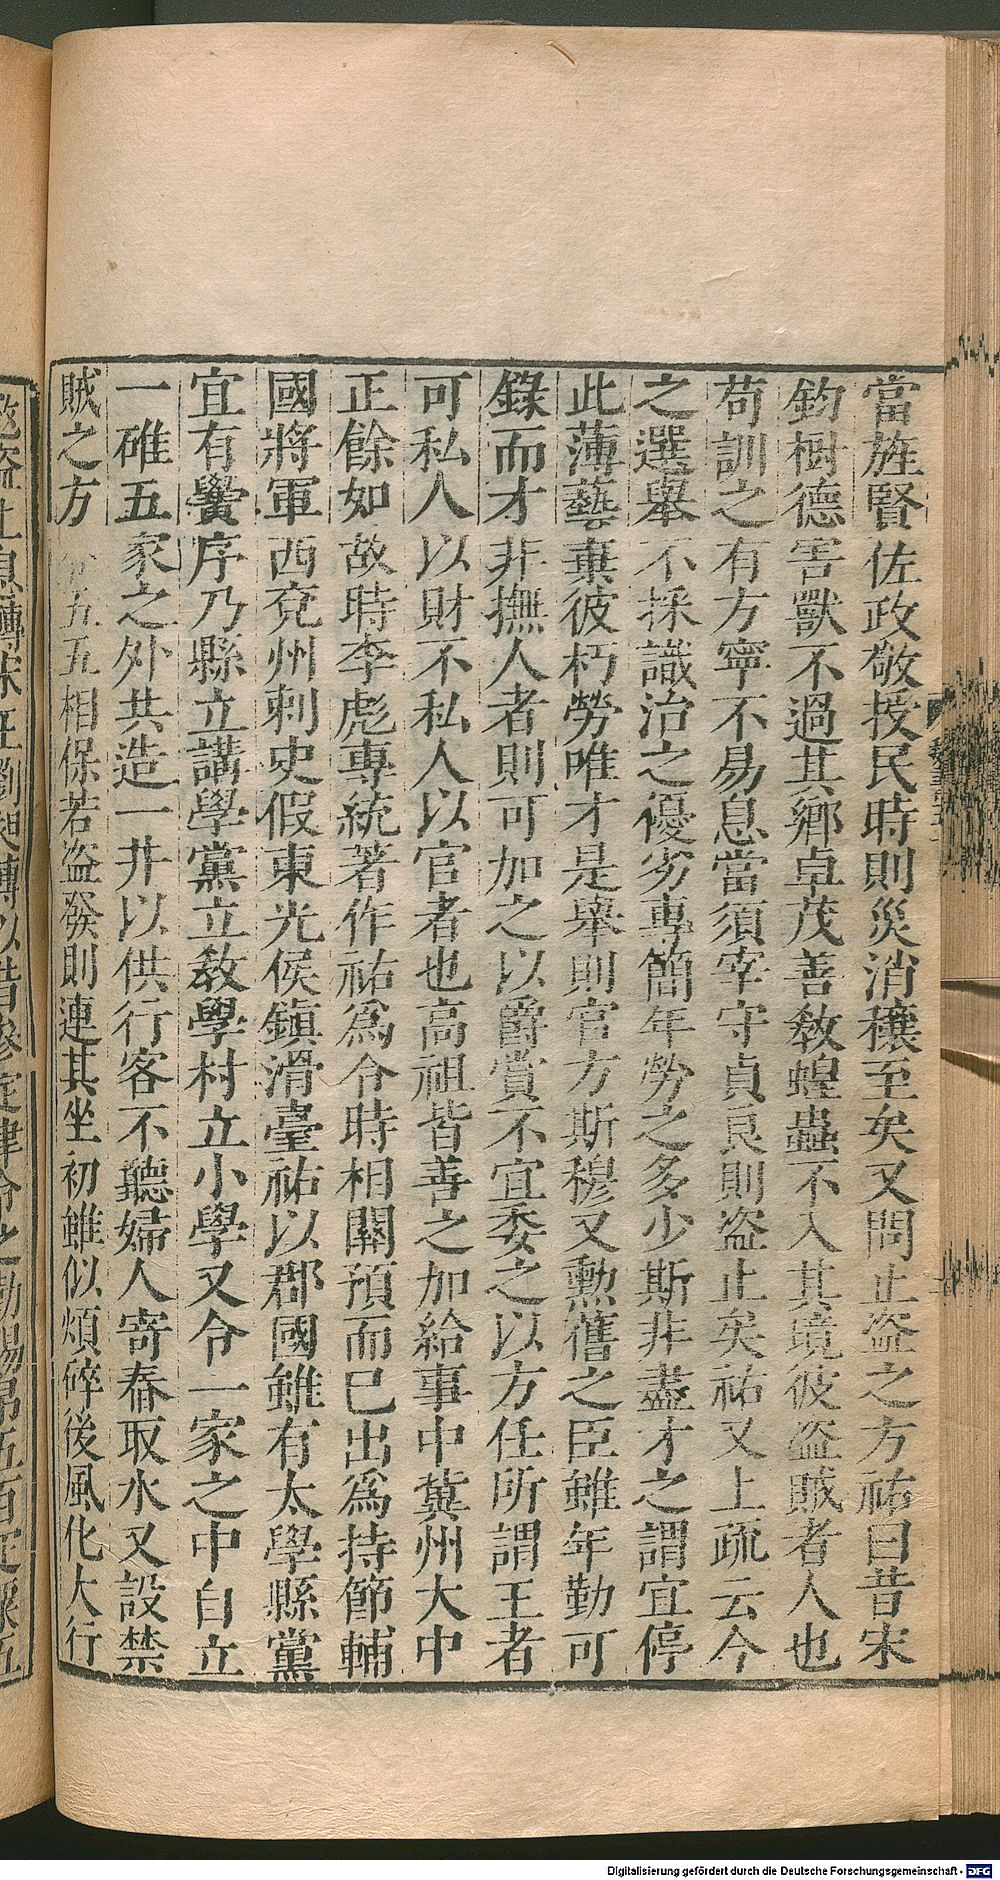 當旌賢佐政敬授民時則災消穰至矣又問止盗之方祐曰昔宋
鈞樹德害獸不過其鄉卓茂善敎蝗蟲不入其境彼盗賊者人也
苟訓之有方寧不易息當須宰守貞良則盗止矣祐又上疏云今
之選舉不採識治之優劣專簡年勞之多少斯非盡才之謂宜停
此薄藝棄彼朽勞唯才是舉則官方斯穆又勲舊之臣雖年勤可
錄而才非撫人者則可加之以爵賞不宜委之以方任所謂王者
可私人以財不私人以官者也高祖皆善之加給事中冀州大中
正餘如故時李彪專統著作祐爲令時相關預而已出爲持節輔
國將軍西兖州刺史假東光侯鎮滑臺祐以郡國雖有太學縣黨
宜有黌序乃縣立講學黨立敎學村立小學又令一家之中自立
一碓五家之外共造一井以供行客不聽婦人寄舂取水又設禁
賊之方五五相保若盗發則連其坐初雖似煩碎後風化大行
Digitalisierung gefördert durch die Deutsche Forschungsgemeinschaft - DFG